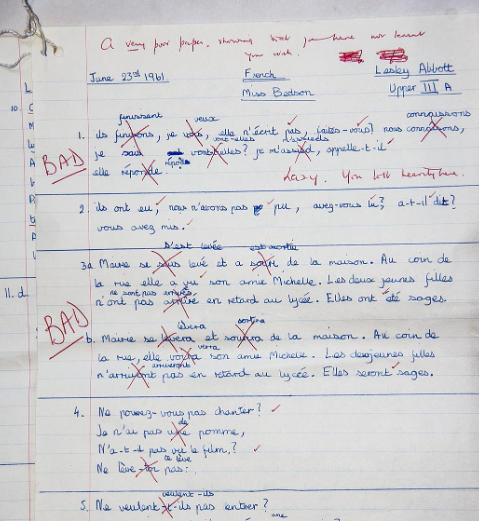 A very poor paper, showing that you have not learnt
your work.
June 23rd 1961 French Lesley Abbott
Miss Bedson Upper III A
finissent veux connaissons
1. ils finissons, je vous, elle n'écrit pas, faites-vous? nous connaisons,
vont-elles m'assieds
je sais vont-elles? je m'assied, appelle-t-il
BAD
répond
elle réponde.
Lazy. You
2. ils ont eu, nous n'avons pas pu, avez-vous lu? a-t-il dit?
vous avez mis.
s'est levée est sortie
3a Marie se levé et a de la maison. Au coin de
la rue elle a vu son amie Michelle. Les deux jeunes filles
ne sont pas arrivées
n'ont pas arrivé en retard au lycée. Elles ont été sages.
BAD
lèvera sortira
b. Marie se levera et de la maison. Au coin de
verra
la rue, elle voira son amie Michelle. Les deux jeunes filles
arriveront
n'arriront pas en retard au lycée. Elles seront sages.
4. Ne pouvez-vous pas chanter?
de
Je n'ai pas une pomme,
N'a-t-il pas vu le film?
te lève
Ne lève-toi pas.
veulent-ils
5. Ne veulent-t-ils pas entrer?
10.
11. d